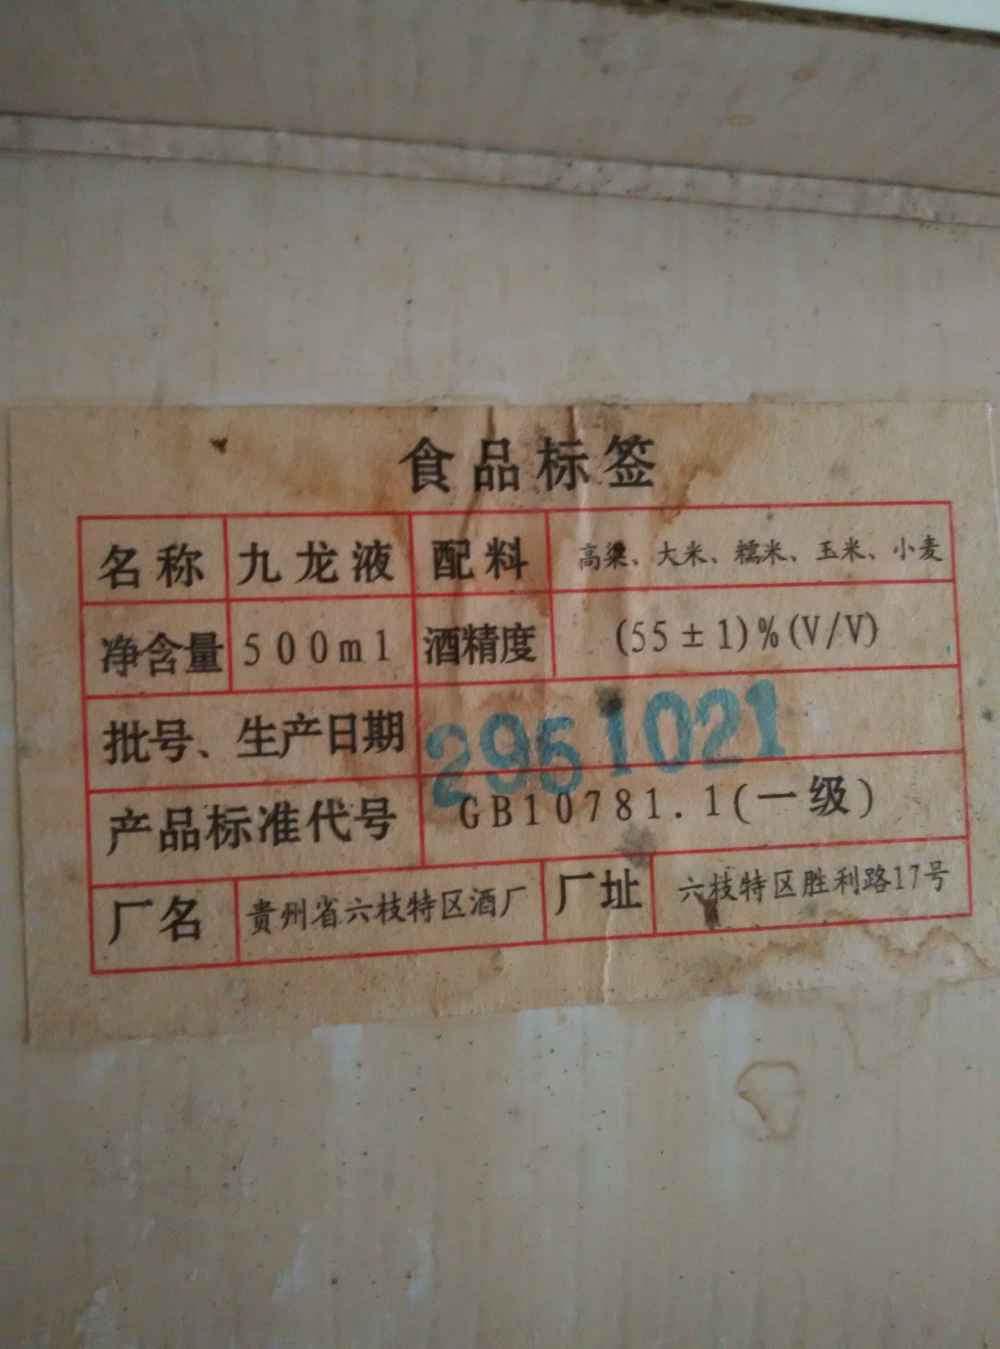 食品标签
名称 九龙液 配料 高粱、大米、糯米、玉米、小麦
净含量 500ml 酒精度 (55±1)%(V/V)
批号、生产日期 2951021
产品标准代号 GB10781.1(一级)
厂名 贵州省六枝特区酒厂 厂址 六枝特区胜利路17号